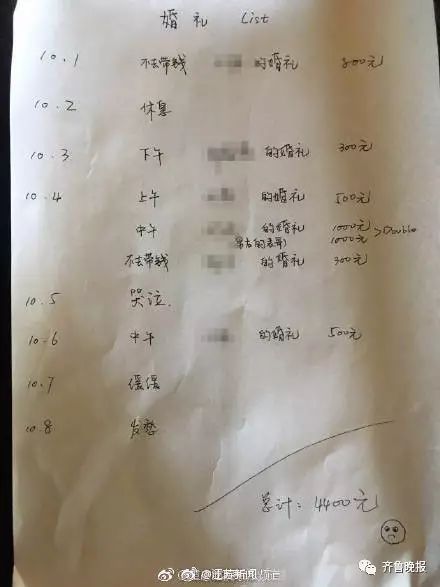 婚礼 List
10.1 不去带钱 的婚礼 800元
10.2 休息
10.3 下午 的婚礼 300元
10.4 上午 的婚礼 500元
中午 的婚礼 1000元
1000元 >Double
不去带钱 的婚礼 300元
10.5 哭泣.
10.6 中午 的婚礼 500元
10.7 缓缓
10.8 发愁
总计: 4400元
@江苏新闻
齐鲁晚报